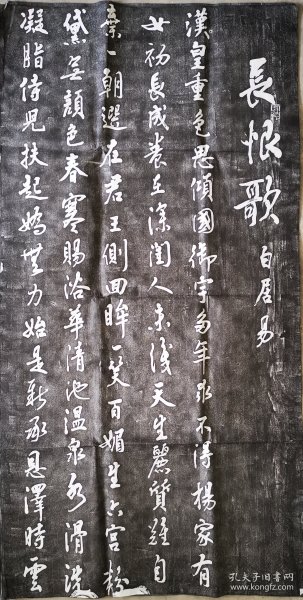 長恨歌
白居易
漢皇重色思傾國御宇多年求不得楊家有
女初長成養在深閨人未識天生麗質難自
棄一朝選在君王側回眸一笑百媚生六宮粉
黛無顏色春寒賜浴華清池溫泉水滑洗
凝脂侍兒扶起嬌無力始是新承恩澤時雲
孔夫子旧书网
www.kongfz.com